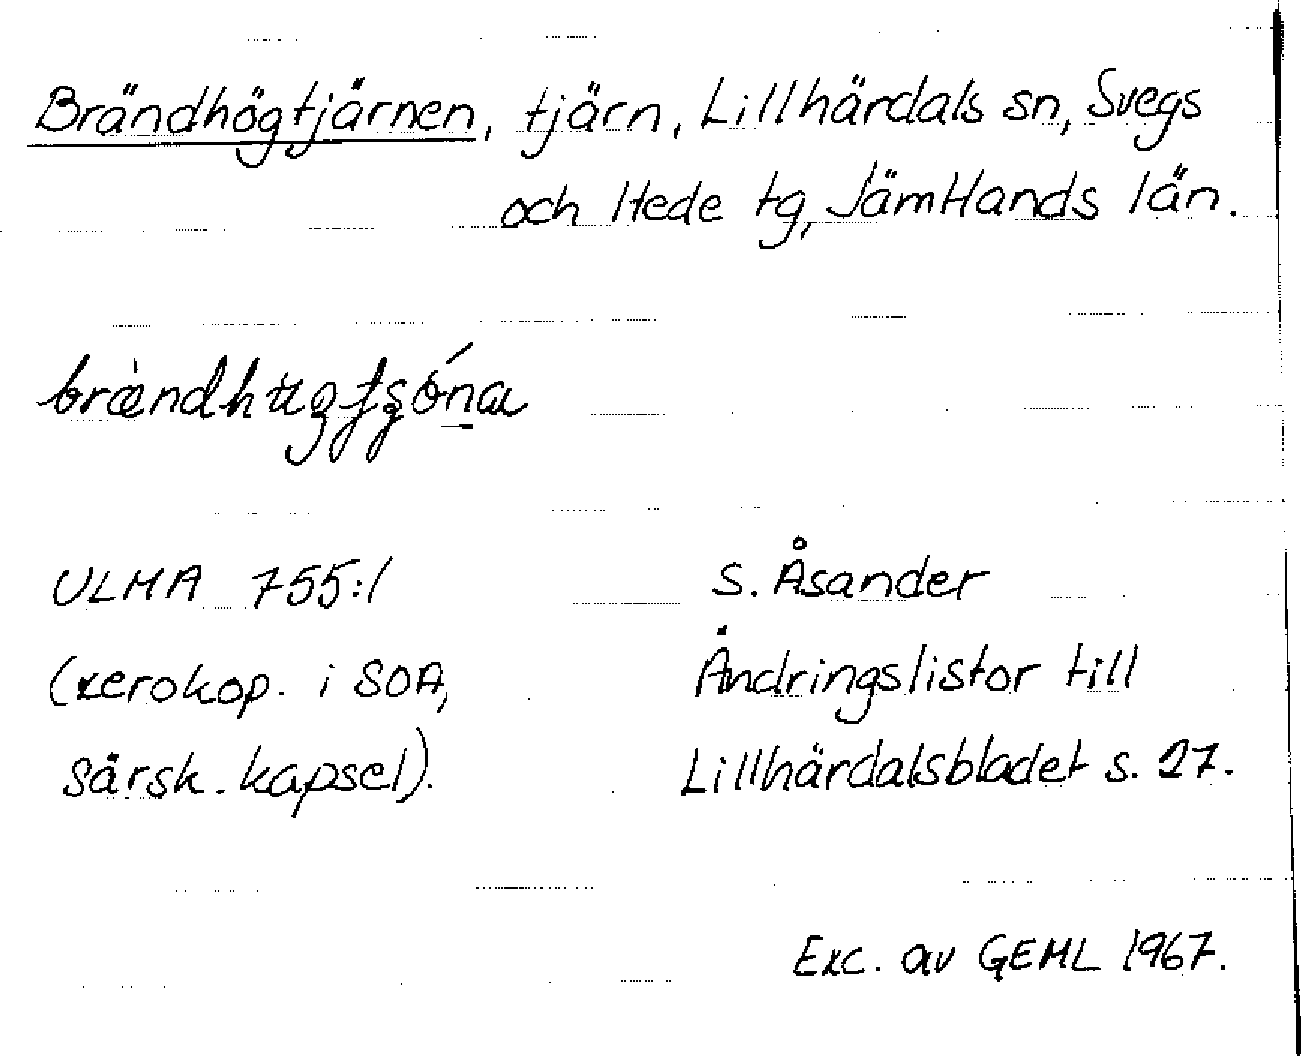 Brändhögtjärnen, tjärn, Lillhärdals sn, Svegs
och Hede tg, Jämtlands län.
ULMA 755:1
S. Åsander
(xerokop. i SOA,
Ändringslistor till
särsk. kapsel).
Lillhärdalsbladet s. 27.
Exc. av GEML 1967.